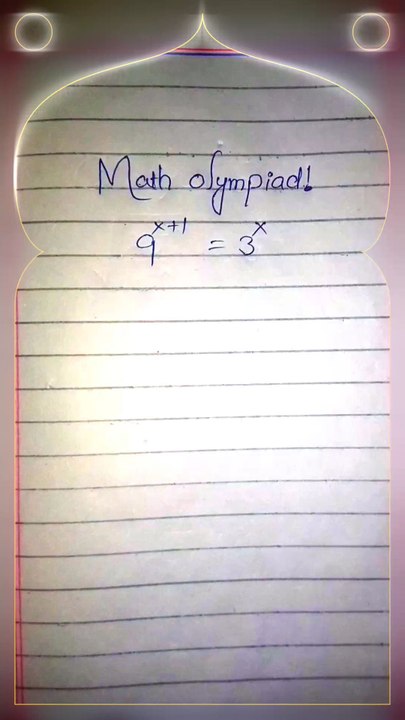 Math olympiad!
9^{x+1} = 3^x